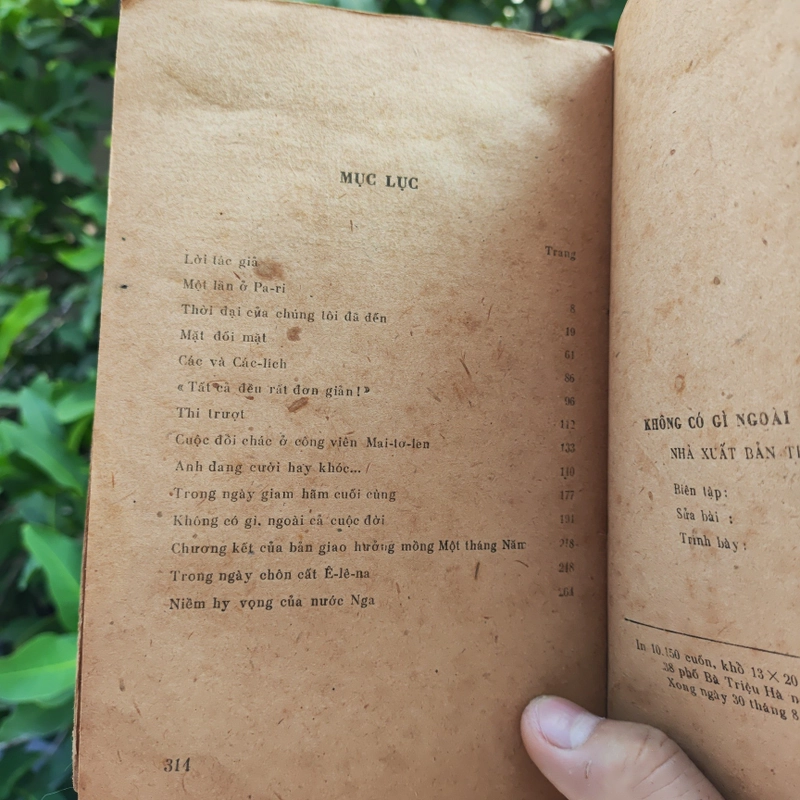 MỤC LỤC
Trang
Lời tác giả
Một lần ở Pa-ri
Thời đại của chúng tôi đã đến 8
Mặt đối mặt 19
Các và Các-lích 61
«Tất cả đều rất đơn giản!» 86
Thi trượt 96
Cuộc đổi chác ở công viên Mai-tơ-len 112
Anh đang cười hay khóc... 133
Trong ngày giam hãm cuối cùng 140
Không có gì, ngoài cả cuộc đời 177
Chương kết của bản giao hưởng mồng Một tháng Năm 191
Trong ngày chôn cất Ê-lê-na 218
Niềm hy vọng của nước Nga 248
264
314
KHÔNG CÓ GÌ NGOÀI
NHÀ XUẤT BẢN
Biên tập:
Sửa bài :
Trình bày:
In 10.150 cuốn, khổ 13 × 20
38 phố Bà Triệu Hà
Xong ngày 30 tháng 8